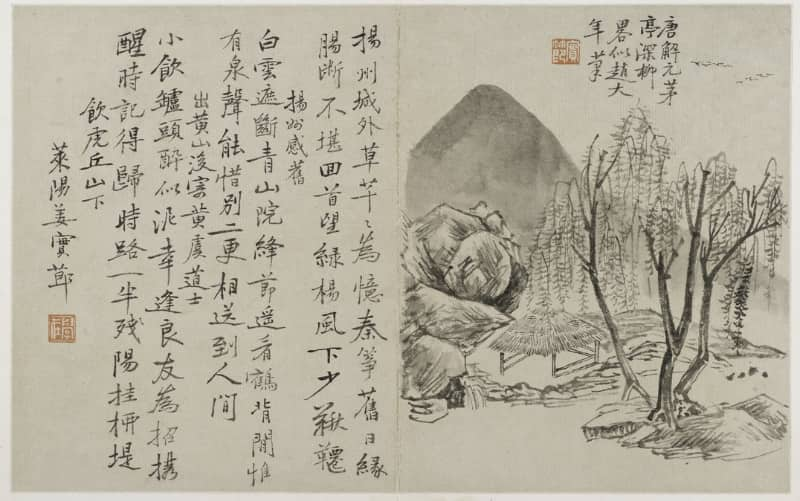 唐解元茅
亭深柳
畧似趙大
年筆
揚州城外草芊〻為憶秦箏舊日緣
腸斷不堪回首望綠楊風下少鞦韆
揚州感舊
白雲遮斷青山院絳節遥看鶴背閒惟
有泉聲能惜別二更相送到人間
出黄山後寄黄虞道士
小飲鑪頭醉似泥幸逢良友為招攜
醒時記得歸時路一半殘陽挂柳堤
飲虎丘山下
萊陽姜實節